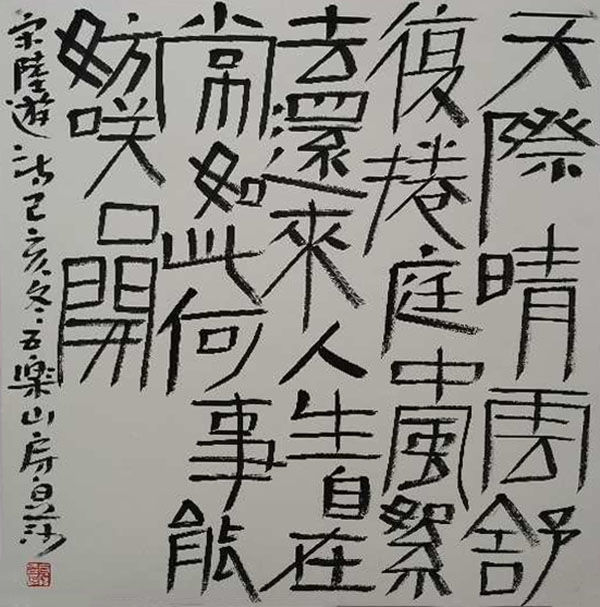 天際晴雲舒
復捲庭中風絮
去還來人生自在
常如此何事能
妨咲口開
宋陸遊詩己亥冬五樂山房